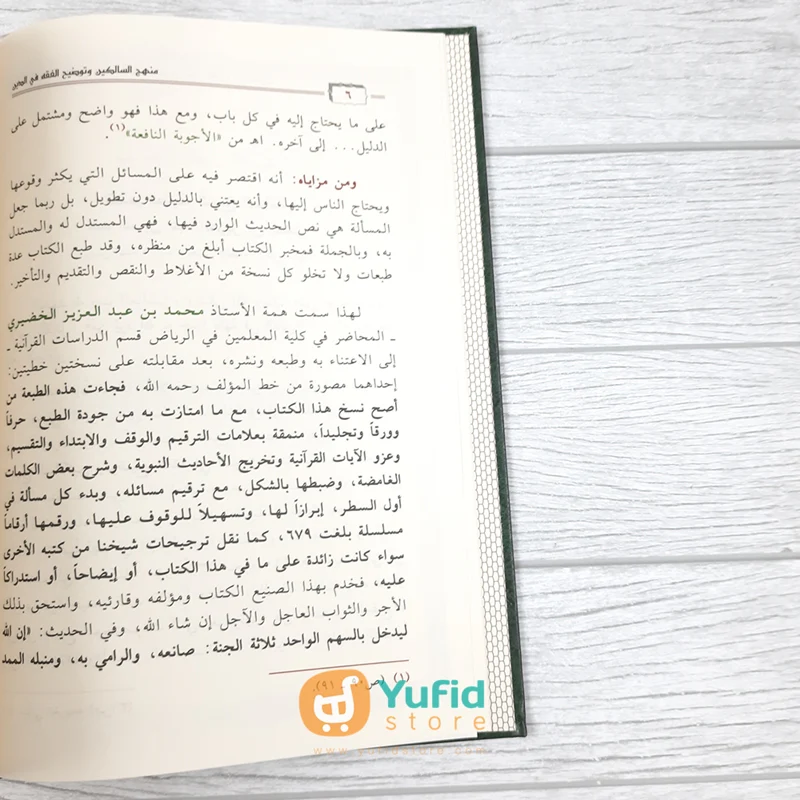 منهج السالكين وتوضيح الفقه في الدين
٦
على ما يحتاج إليه في كل باب، ومع هذا فهو واضح ومشتمل على
الدليل... إلى آخره. اهـ من «الأجوبة النافعة»(١).
ومن مزاياه: أنه اقتصر فيه على المسائل التي يكثر وقوعها
ويحتاج الناس إليها، وأنه يعتني بالدليل دون تطويل، بل ربما جعل
المسألة هي نص الحديث الوارد فيها، فهي المستدل له والمستدل
به، وبالجملة فمخبر الكتاب أبلغ من منظره، وقد طبع الكتاب عدة
طبعات ولا تخلو كل نسخة من الأغلاط والنقص والتقديم والتأخير.
لهذا سمت همة الأستاذ محمد بن عبد العزيز الخضيري
ـ المحاضر في كلية المعلمين في الرياض قسم الدراسات القرآنية ـ
إلى الاعتناء به وطبعه ونشره، بعد مقابلته على نسختين خطيتين:
إحداهما مصورة من خط المؤلف رحمه الله، فجاءت هذه الطبعة من
أصح نسخ هذا الكتاب، مع ما امتازت به من جودة الطبع، حرفاً
وورقاً وتجليداً، منمقة بعلامات الترقيم والوقف والابتداء والتقسيم،
وعزو الآيات القرآنية وتخريج الأحاديث النبوية، وشرح بعض الكلمات
الغامضة، وضبطها بالشكل، مع ترقيم مسائله، وبدء كل مسألة في
أول السطر، إبرازاً لها، وتسهيلاً للوقوف عليها، ورقمها أرقاماً
مسلسلة بلغت ٦٧٩، كما نقل ترجيحات شيخنا من كتبه الأخرى
سواء كانت زائدة على ما في هذا الكتاب، أو إيضاحاً، أو استدراكاً
عليه، فخدم بهذا الصنيع الكتاب ومؤلفه وقارئيه، واستحق بذلك
الأجر والثواب العاجل والآجل إن شاء الله، وفي الحديث: «إن الله
ليدخل بالسهم الواحد ثلاثة الجنة: صانعه، والرامي به، ومنبله الممد
(١) (ص ٩١).
Yufid
store